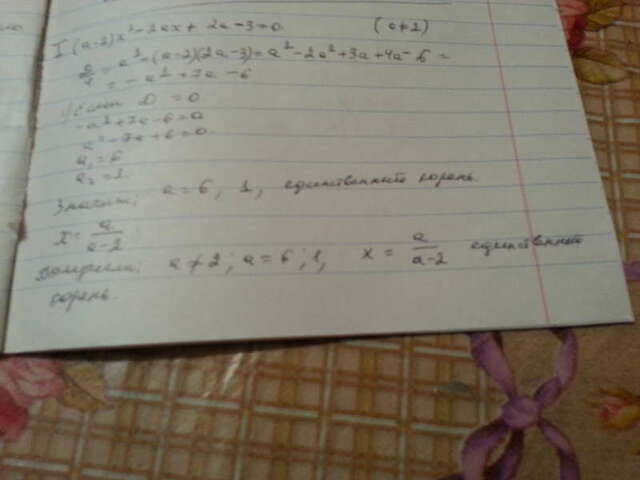 I (a-2)x² - 2ax + 2a - 3 = 0 (a≠2)
D/4 = a² - (a-2)(2a-3) = a² - 2a² + 3a + 4a - 6 =
= -a² + 7a - 6
1) Если D = 0
-a² + 7a - 6 = 0
a² - 7a + 6 = 0
a₁ = 6
a₂ = 1.
Значит: a = 6, 1, единственный корень.
x = a/(a-2)
a ≠ 2; a = 6; 1, x = a/(a-2) единственный
корень.